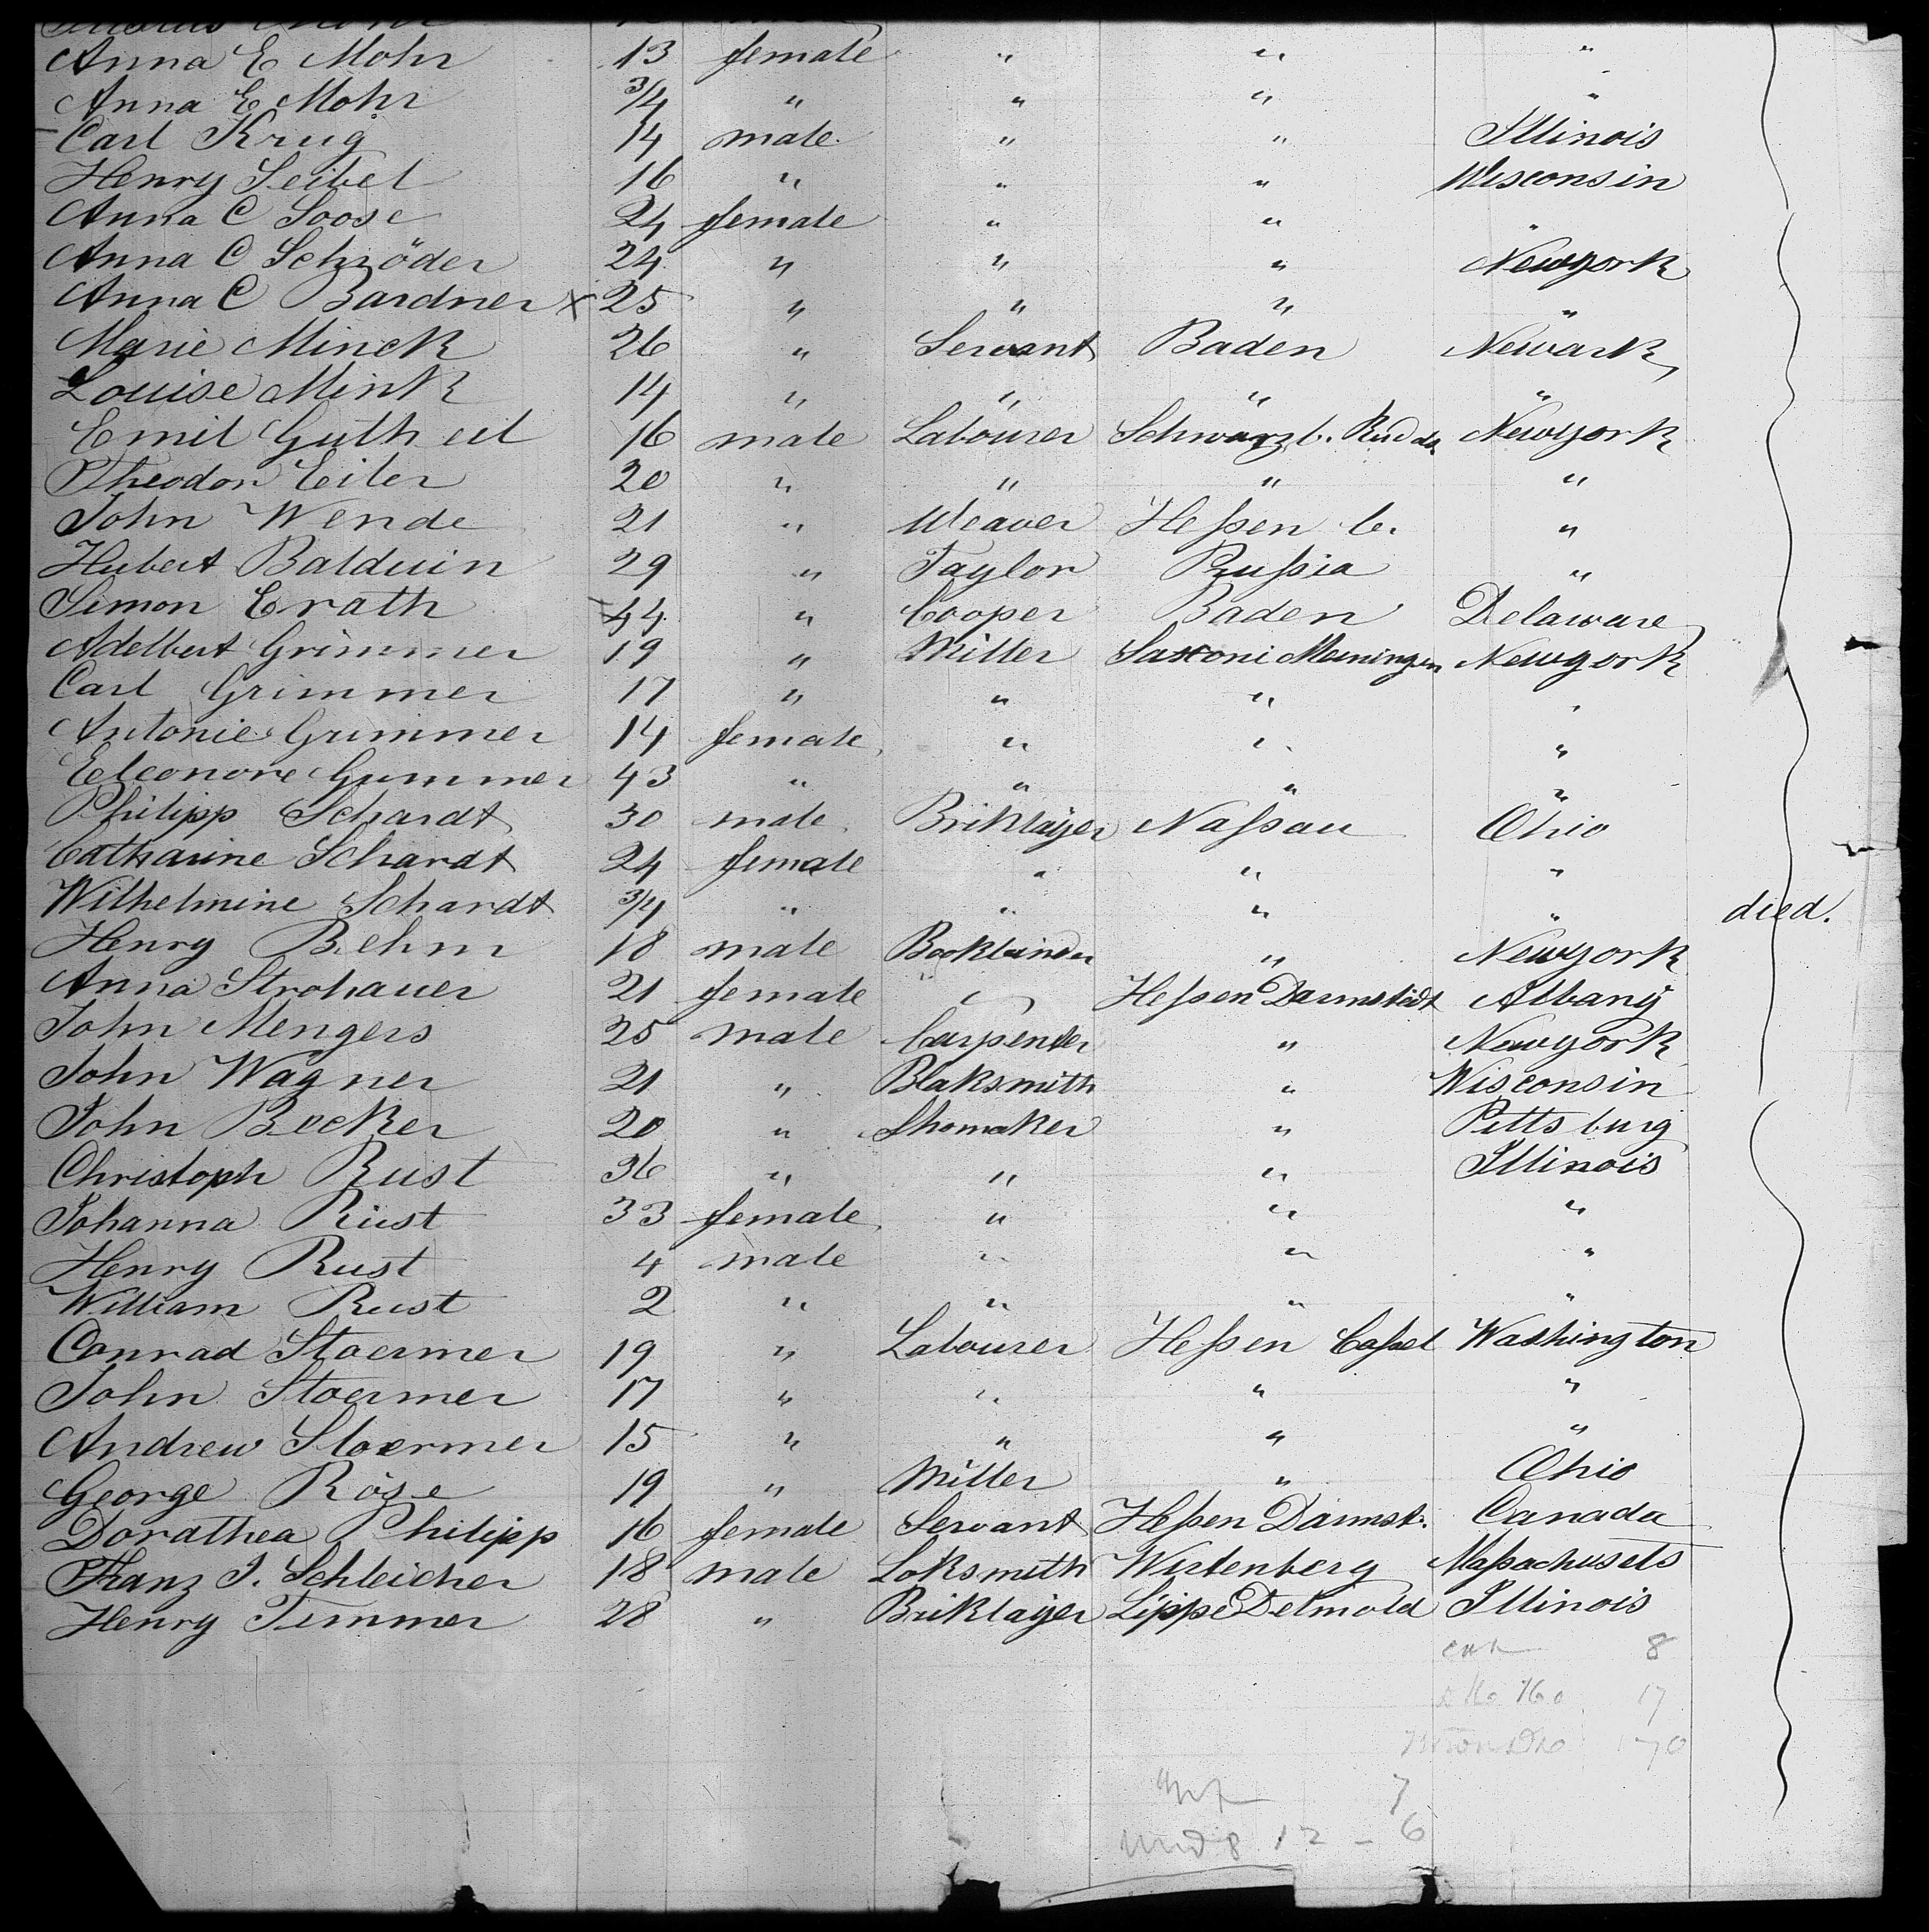 Anna E Mohr 13 female " " "
Anna E Mohr 3/4 " " " "
Carl Krug 14 male " " Illinois
Henry Seibel 16 " " " Wisconsin
Anna C Soose 24 female " " "
Anna C Schröder 24 " " " Newyork
Anna C Bardner x 25 " " " "
Marie Minck 26 " Servant Baden Newark
Louise Mink 14 " " " "
Emil Gutheil 16 male Labourer Schwarzb. Rudda Newyork
Theodor Eiler 20 " " " "
John Wende 21 " Weaver Heßen C. "
Hubert Balduin 29 " Taylor Rußia "
Simon Erath 44 " Cooper Baden Delaware
Adelbert Grimmer 19 " Miller Saxoni Meiningen Newyork
Carl Grimmer 17 " " " "
Antonie Grimmer 14 female " " "
Eleonore Grimmer 43 " " " "
Philipp Schardt 30 male Briklayer Naßau Ohio
Catharine Schardt 24 female " " "
Wilhelmine Schardt 3/4 " " " " died.
Henry Behm 18 male Bookbinder " Newyork
Anna Strohauer 21 female " Heßen Darmstadt Albany
John Mengers 25 male Carpenter " Newyork
John Wagner 21 " Blaksmith " Wisconsin
John Becker 20 " Shomaker " Pittsburg
Christoph Rust 36 " " " Illinois
Johanna Rust 33 female " " "
Henry Rust 4 male " " "
William Rust 2 " " " "
Conrad Stoermer 19 " Labourer Heßen Caßel Washington
John Stoermer 17 " " " "
Andrew Stoermer 15 " " " "
George Röse 19 " Miller " Ohio
Dorathea Philipp 16 female Servant Heßen Darmst. Canada
Franz J. Schleicher 18 male Loksmith Wirtenberg Maßachusets
Henry Timmer 28 " Briklayer Lippe Detmold Illinois
8
17
7
12 - 6